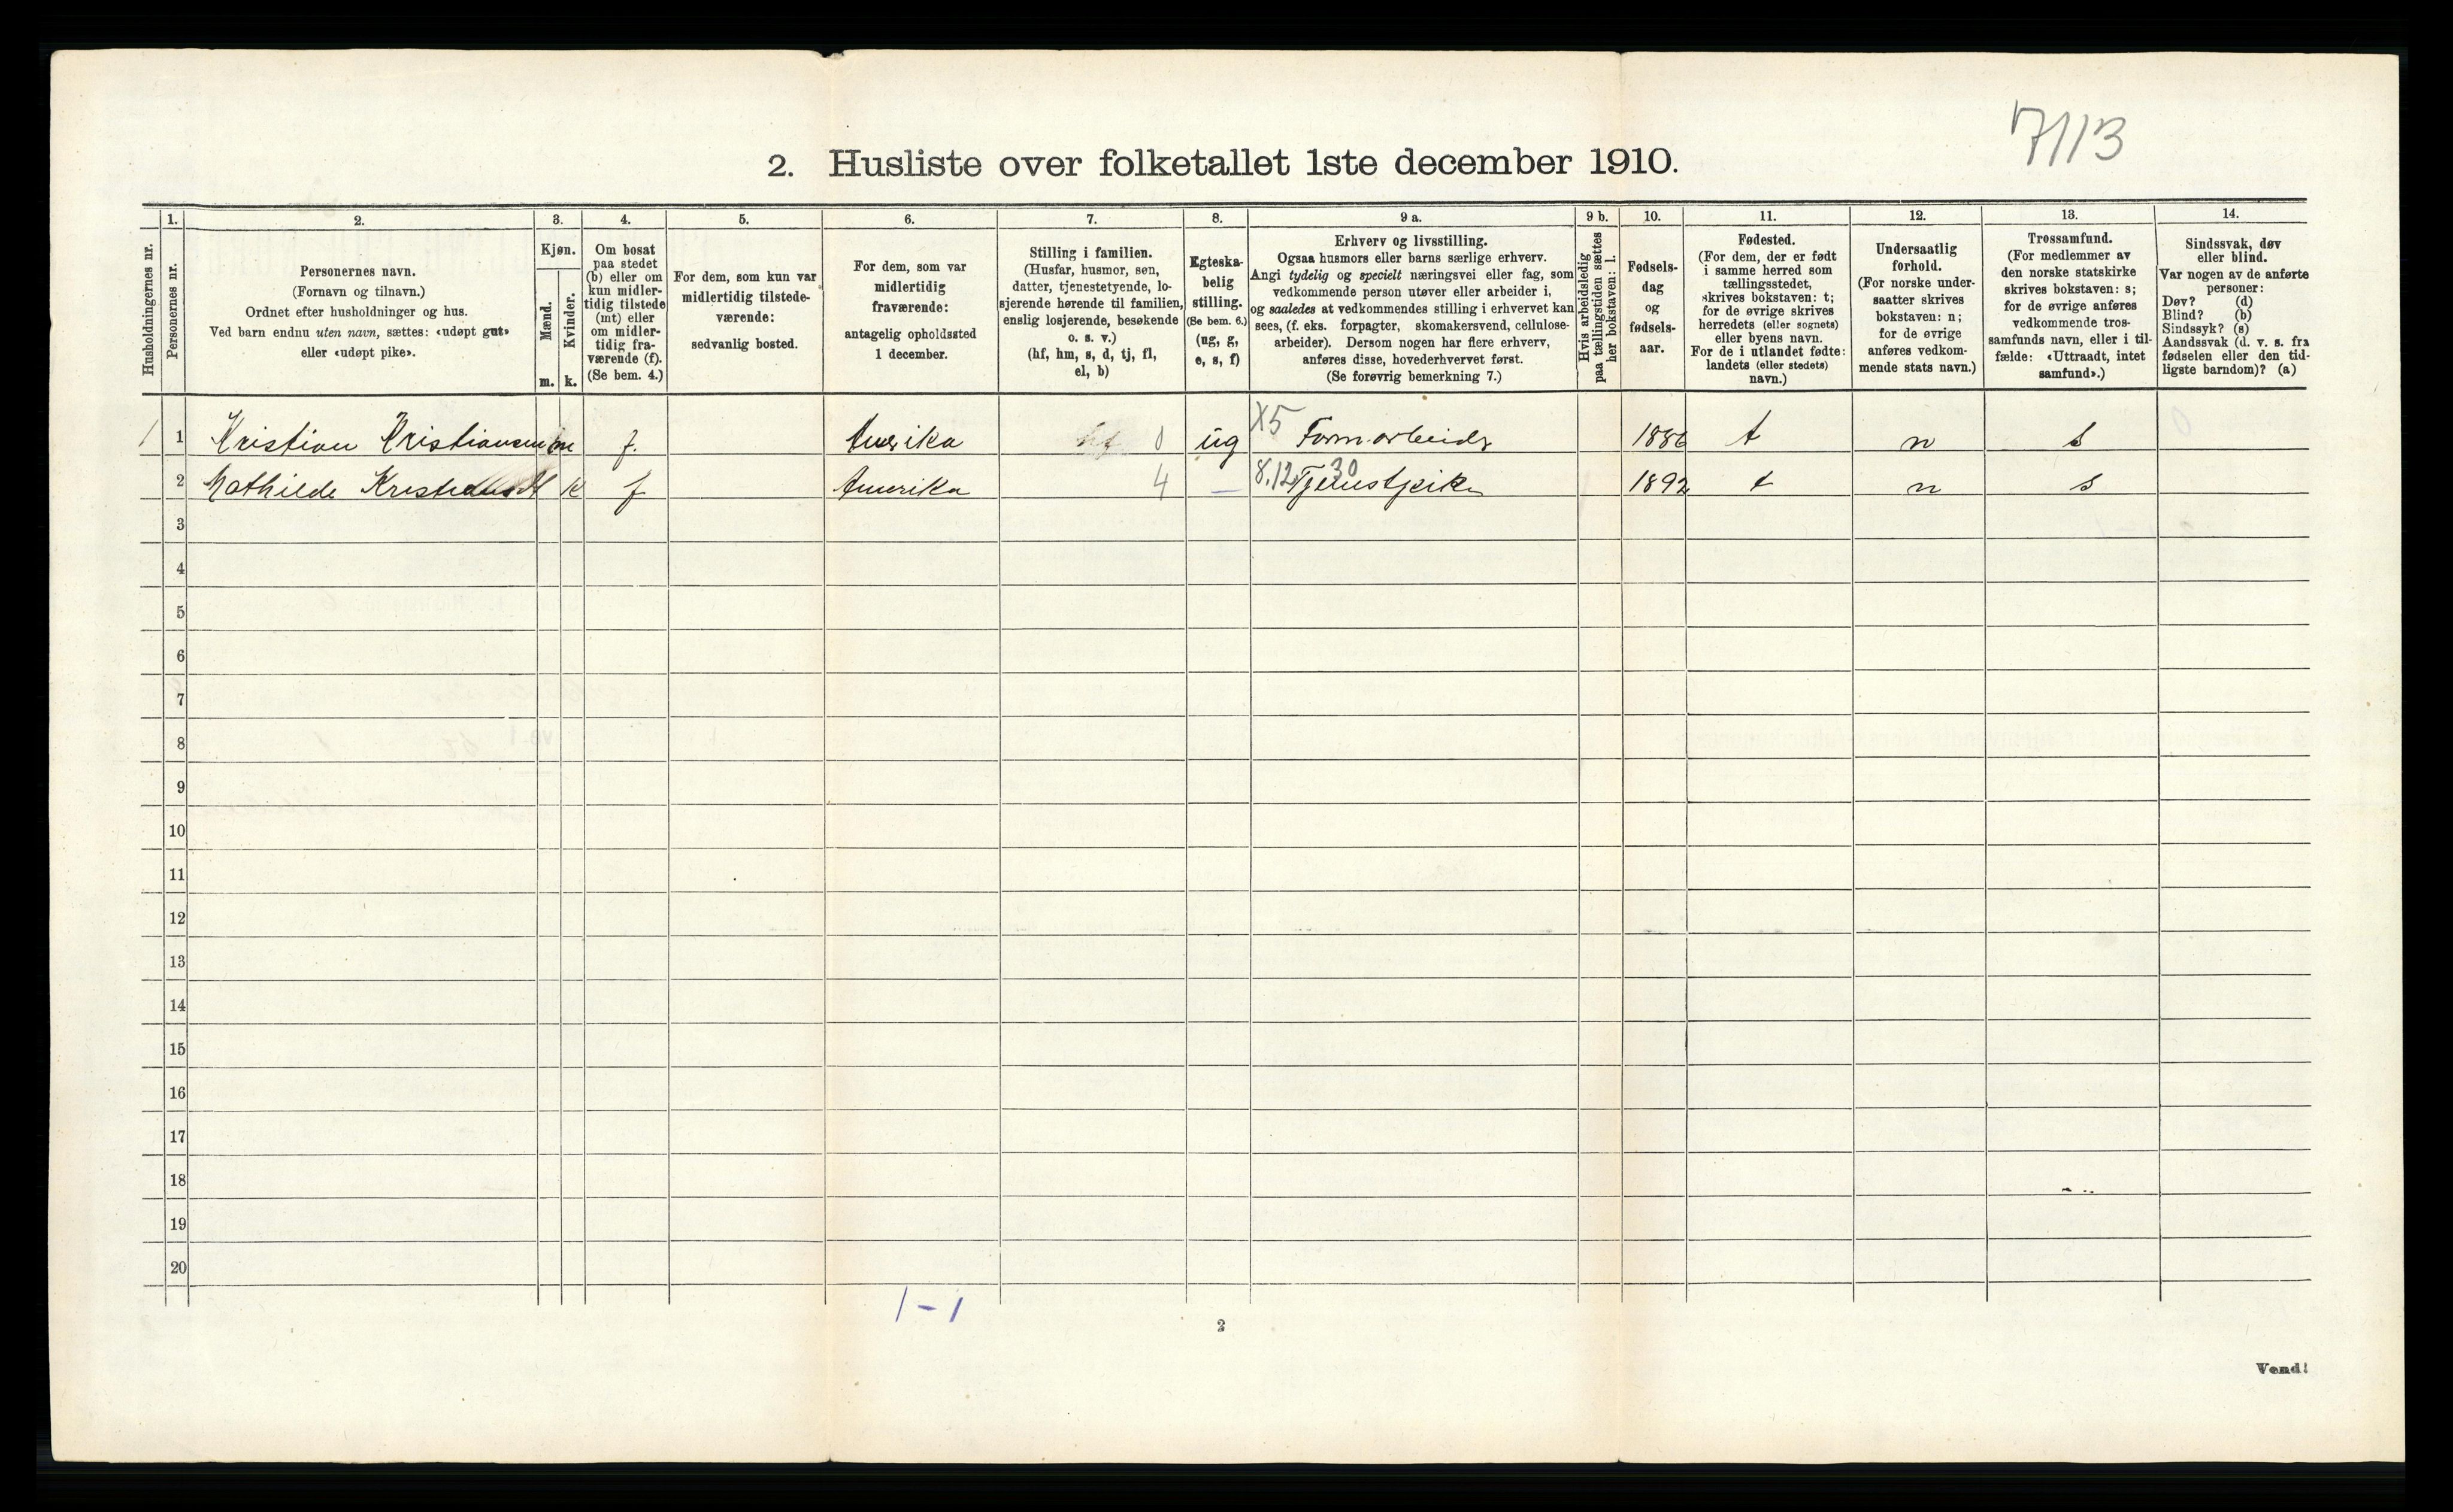 7113
2. Husliste over folketallet 1ste december 1910.
1. 2. 3. 4. 5. 6. 7. 8. 9 a. 9 b. 10. 11. 12. 13. 14.
Husholdningernes nr.
Personernes nr.
Personernes navn.
(Fornavn og tilnavn.)
Ordnet efter husholdninger og hus.
Ved barn endnu uten navn, sættes: «udøpt gut»
eller «udøpt pike».
Kjøn.
Mænd.
Kvinder.
m. k.
Om bosat
paa stedet
(b) eller om
kun midler-
tidig tilstede
(mt) eller
om midler-
tidig fra-
værende (f).
(Se bem. 4.)
For dem, som kun var
midlertidig tilstede-
værende:
sedvanlig bosted.
For dem, som var
midlertidig
fraværende:
antagelig opholdssted
1 december.
Stilling i familien.
(Husfar, husmor, søn,
datter, tjenestetyende, lo-
sjerende hørende til familien,
enslig losjerende, besøkende
o. s. v.)
(hf, hm, s, d, tj, fl,
el, b)
Egteska-
belig
stilling.
(Se bem. 6.)
(ug, g,
e, s, f)
Erhverv og livsstilling.
Ogsaa husmors eller barns særlige erhverv.
Angi tydelig og specielt næringsvei eller fag, som
vedkommende person utøver eller arbeider i,
og saaledes at vedkommendes stilling i erhvervet kan
sees, (f. eks. forpagter, skomakersvend, cellulose-
arbeider). Dersom nogen har flere erhverv,
anføres disse, hovederhvervet først.
(Se forøvrig bemerkning 7.)
Hvis arbeidsledig
paa tællingstiden sættes
her bokstaven: l.
Fødsels-
dag
og
fødsels-
aar.
Fødested.
(For dem, der er født
i samme herred som
tællingsstedet,
skrives bokstaven: t;
for de øvrige skrives
herredets (eller sognets)
eller byens navn.
For de i utlandet fødte:
landets (eller stedets)
navn.)
Undersaatlig
forhold.
(For norske under-
saatter skrives
bokstaven: n;
for de øvrige
anføres vedkom-
mende stats navn.)
Trossamfund.
(For medlemmer av
den norske statskirke
skrives bokstaven: s;
for de øvrige anføres
vedkommende tros-
samfunds navn, eller i til-
fælde: «Uttraadt, intet
samfund».)
Sindssvak, døv
eller blind.
Var nogen av de anførte
personer:
Døv? (d)
Blind? (b)
Sindssyk? (s)
Aandssvak (d. v. s. fra
fødselen eller den tid-
ligste barndom)? (a)
1 1 Kristian Kristiansen m f. Amerika 0 ug X5 Farmarbeider 1886 t n s
2 Mathilde k f Amerika 4 — 8.12 30 Tjenestpike 1892 t n s
3
4
5
6
7
8
9
10
11
12
13
14
15
16
17
18
19
20
1 - 1
2
Vend!